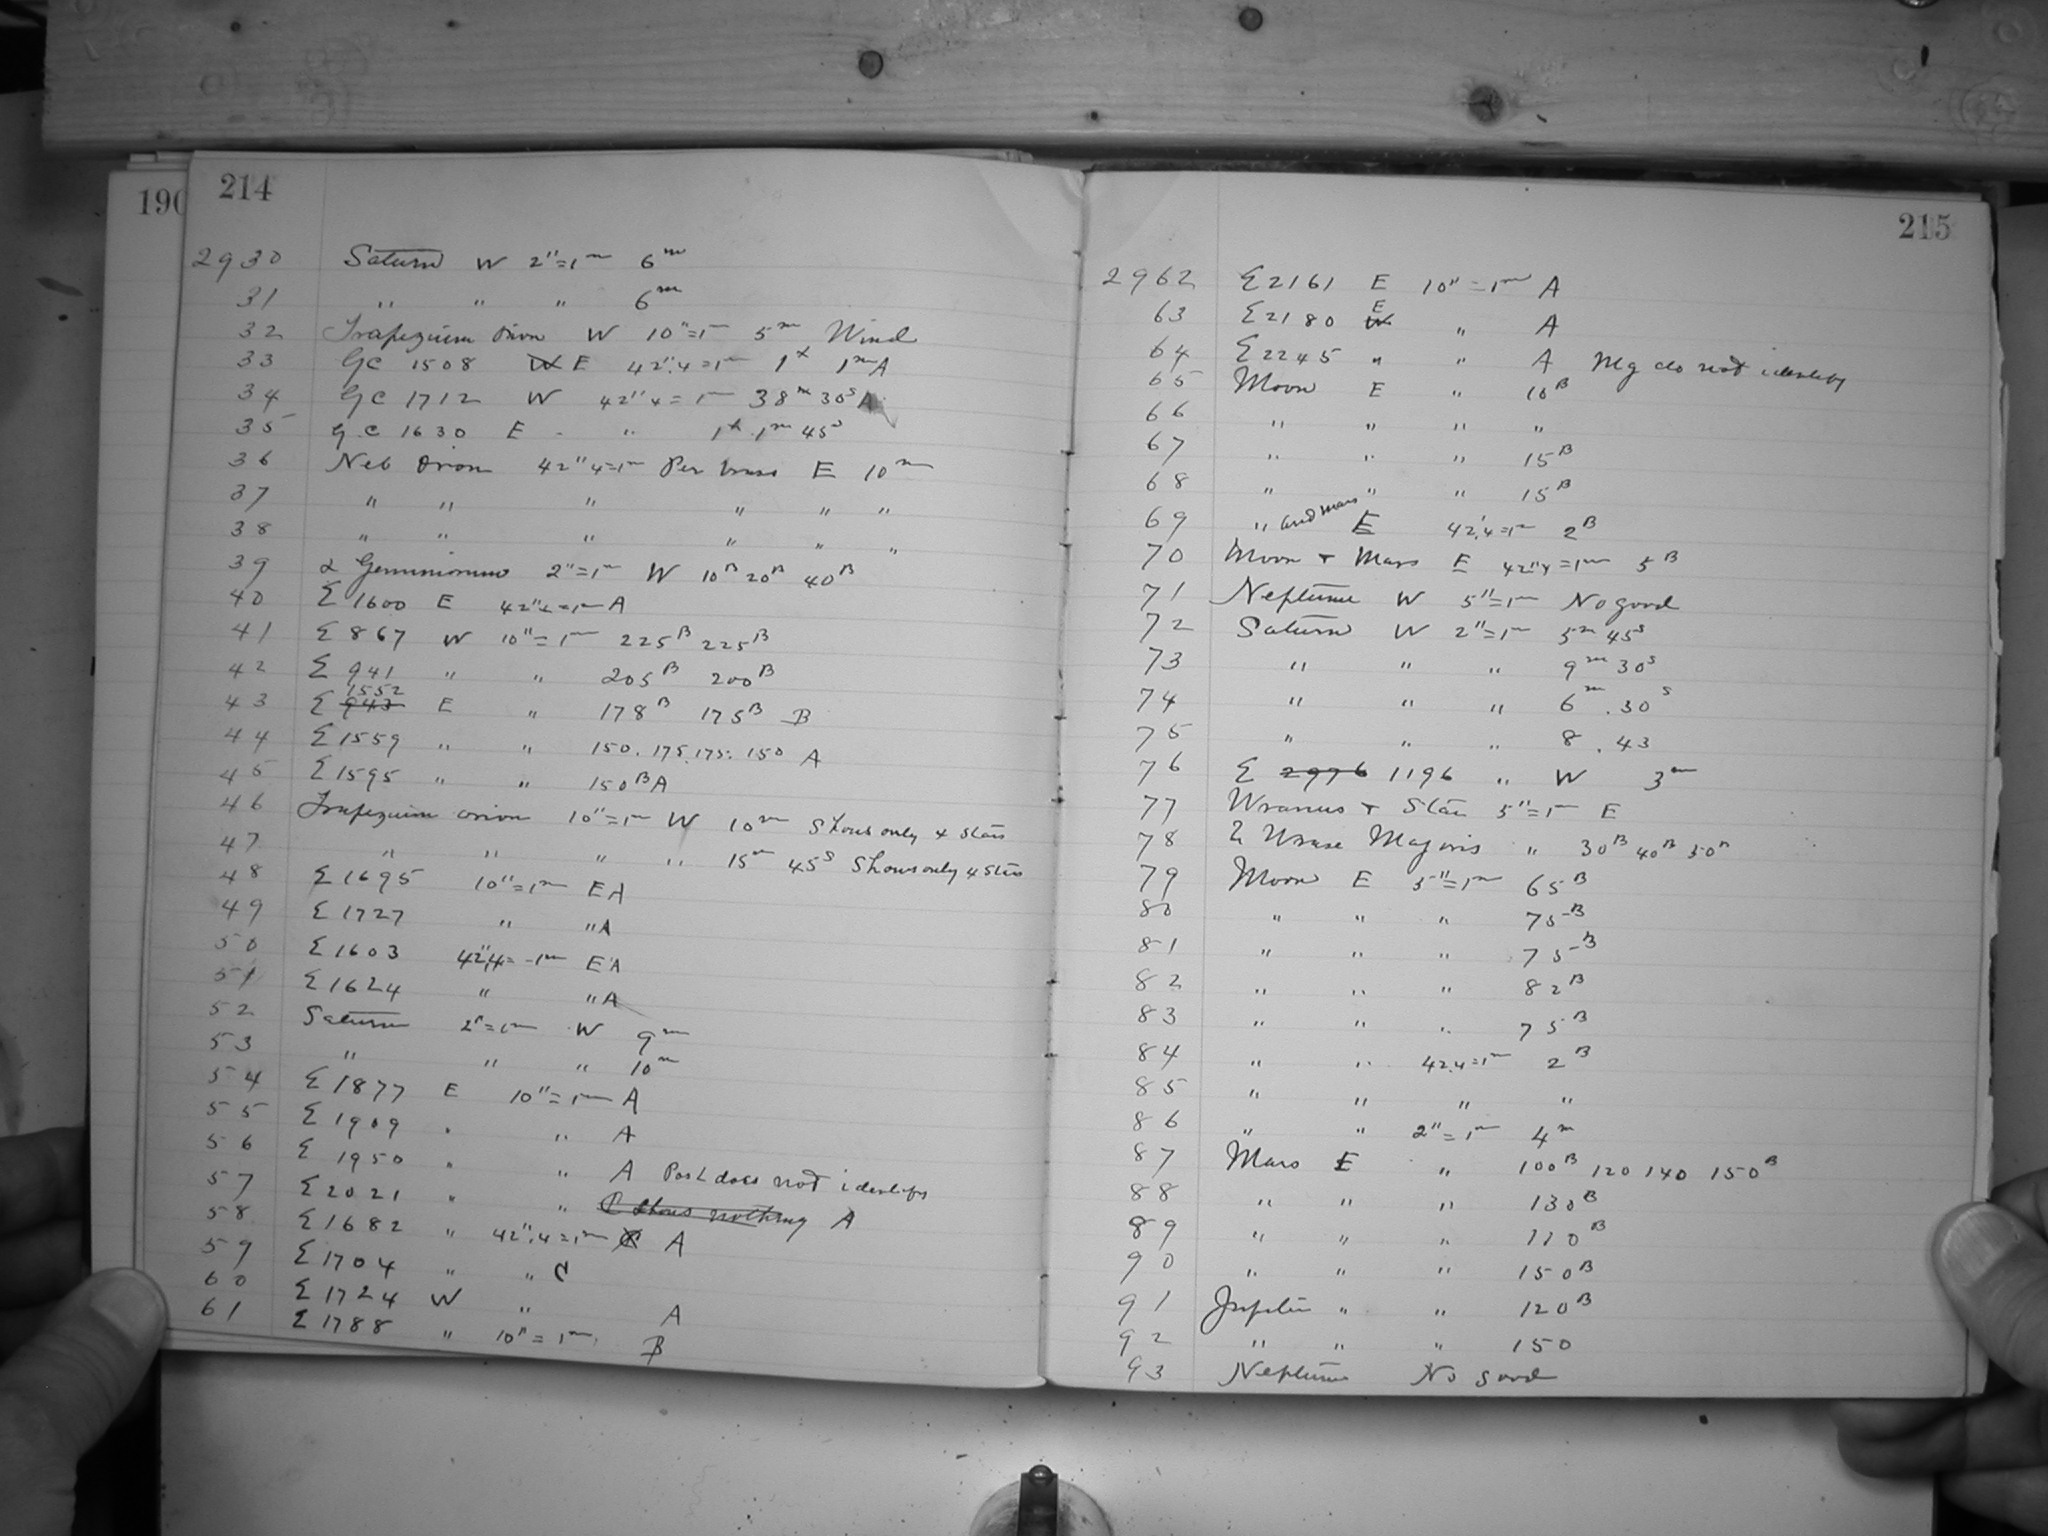 190
214
2930 Saturn W 2"=1m 6m
31 " " " 6m
32 Trapezium Orion W 10"=1m 5m Wind
33 GC 1508 W E 42".4=1m 1h 1m A
34 GC 1712 W 42".4=1m 38m 30s A
35 G.C 1630 E " 1h 1m 45s
36 Neb Orion 42".4=1m E 10m
37 " " " " " "
38 " " " " " "
39 α Geminorum 2"=1m W 10B 20B 40B
40 Σ 1600 E 42".4=1m A
41 Σ 867 W 10"=1m 225B 225B
42 Σ 941 " " 205B 200B
43 Σ 943 1552 E " 178B 175B B
44 Σ 1559 " " 150. 175. 175. 150 A
45 Σ 1595 " " 150B A
46 Trapezium Orion 10"=1m W 10m Shows only 4 stars
47 " " " " 15m 45s Shows only 4 stars
48 Σ 1695 10"=1m E A
49 Σ 1727 " " A
50 Σ 1603 42".4=1m E A
51 Σ 1624 " " A
52 Saturn 2"=1m W 9m
53 " " " 10m
54 Σ 1877 E 10"=1m A
55 Σ 1909 " " A
56 Σ 1950 " " A Post does not identify
57 Σ 2021 " " C shows nothing A
58 Σ 1682 " 42".4=1m A
59 Σ 1704 " " C
60 Σ 1724 W " A
61 Σ 1788 " 10"=1m B
215
2962 Σ 2161 E 10"=1m A
63 Σ 2180 W E " A
64 Σ 2245 " " A Mg do not identify
65 Moon E " 10B
66 " " " "
67 " " " 15B
68 " " " 15B
69 " and Mars E 42".4=1m 2B
70 Moon + Mars E 42".4=1m 5B
71 Neptune W 5"=1m No good
72 Saturn W 2"=1m 5m 45s
73 " " " 9m 30s
74 " " " 6m .30s
75 " " " 8 .43
76 Σ 2976 1196 " W 3m
77 Uranus + Star 5"=1m E
78 ξ Ursae Majoris " 30B 40B 50B
79 Moon E 5"=1m 65B
80 " " " 75B
81 " " " 75B
82 " " " 82B
83 " " " 75B
84 " " 42.4=1m 2B
85 " " " "
86 " " 2"=1m 4m
87 Mars E " 100B 120 140 150B
88 " " " 130B
89 " " " 110B
90 " " " 150B
91 Jupiter " " 120B
92 " " " 150
93 Neptune No good